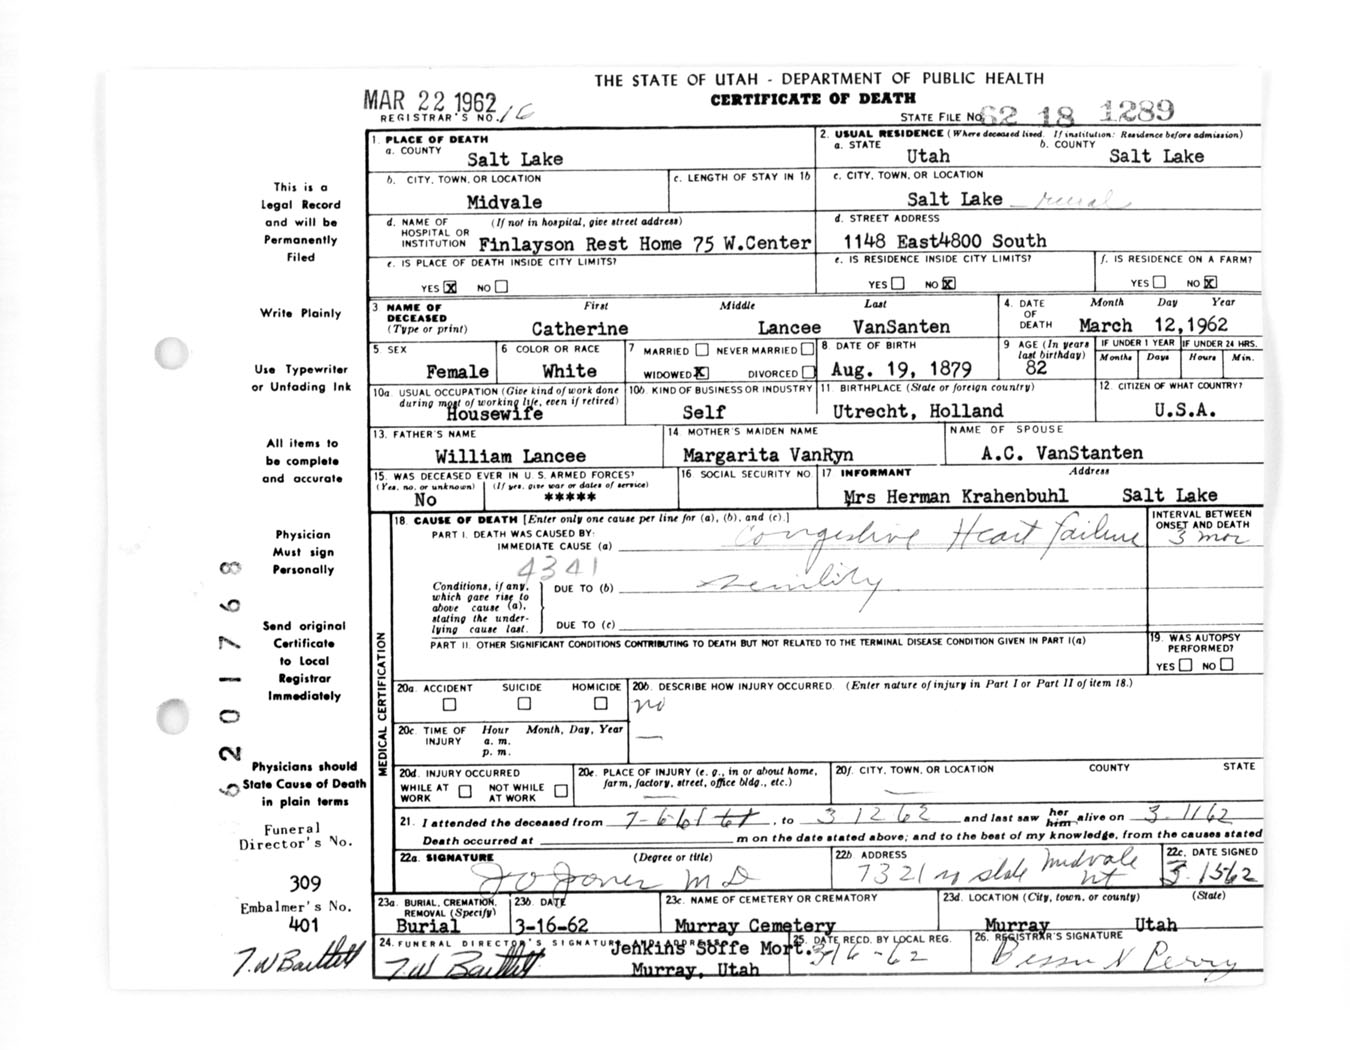 THE STATE OF UTAH - DEPARTMENT OF PUBLIC HEALTH
CERTIFICATE OF DEATH
MAR 22 1962
REGISTRAR'S NO. 16
STATE FILE NO. 62 18 1289
1. PLACE OF DEATH
a. COUNTY Salt Lake
2. USUAL RESIDENCE (Where deceased lived. If institution: Residence before admission)
a. STATE Utah b. COUNTY Salt Lake
b. CITY, TOWN, OR LOCATION Midvale
c. LENGTH OF STAY IN 1b
c. CITY, TOWN, OR LOCATION Salt Lake rural
d. NAME OF HOSPITAL OR INSTITUTION (If not in hospital, give street address) Finlayson Rest Home 75 W.Center
d. STREET ADDRESS 1148 East4800 South
e. IS PLACE OF DEATH INSIDE CITY LIMITS?
YES X NO
e. IS RESIDENCE INSIDE CITY LIMITS?
YES NO X
f. IS RESIDENCE ON A FARM?
YES NO X
3 NAME OF DECEASED (Type or print) First Middle Last
Catherine Lancee VanSanten
4. DATE OF DEATH Month Day Year
March 12,1962
5. SEX Female
6 COLOR OR RACE White
7 MARRIED NEVER MARRIED
WIDOWED X DIVORCED
8 DATE OF BIRTH Aug. 19, 1879
9 AGE (In years last birthday) 82
IF UNDER 1 YEAR Months Days
IF UNDER 24 HRS. Hours Min.
10a. USUAL OCCUPATION (Give kind of work done during most of working life, even if retired) Housewife
10b. KIND OF BUSINESS OR INDUSTRY Self
11. BIRTHPLACE (State or foreign country) Utrecht, Holland
12. CITIZEN OF WHAT COUNTRY? U.S.A.
13. FATHER'S NAME William Lancee
14. MOTHER'S MAIDEN NAME Margarita VanRyn
NAME OF SPOUSE A.C. VanStanten
15. WAS DECEASED EVER IN U. S. ARMED FORCES?
(Yes, no, or unknown) (If yes, give war or dates of service)
No *****
16. SOCIAL SECURITY NO.
17 INFORMANT Address
Mrs Herman Krahenbuhl Salt Lake
18. CAUSE OF DEATH [Enter only one cause per line for (a), (b), and (c).]
INTERVAL BETWEEN ONSET AND DEATH
PART I. DEATH WAS CAUSED BY:
IMMEDIATE CAUSE (a) Congestive Heart failure 3 mos
4341
Conditions, if any, which gave rise to above cause (a), stating the underlying cause last.
DUE TO (b) senility
DUE TO (c)
PART II. OTHER SIGNIFICANT CONDITIONS CONTRIBUTING TO DEATH BUT NOT RELATED TO THE TERMINAL DISEASE CONDITION GIVEN IN PART I(a)
19. WAS AUTOPSY PERFORMED?
YES NO
20a. ACCIDENT SUICIDE HOMICIDE
20b. DESCRIBE HOW INJURY OCCURRED. (Enter nature of injury in Part I or Part II of item 18.)
no
20c. TIME OF INJURY Hour Month, Day, Year
a. m.
p. m.
20d. INJURY OCCURRED
WHILE AT WORK NOT WHILE AT WORK
20e. PLACE OF INJURY (e. g., in or about home, farm, factory, street, office bldg., etc.)
20f. CITY, TOWN, OR LOCATION COUNTY STATE
21. I attended the deceased from 7-6-61 61, to 3 12 62 and last saw her him alive on 3-11 62
Death occurred at m on the date stated above; and to the best of my knowledge, from the causes stated
22a. SIGNATURE (Degree or title) J O Jones M D
22b. ADDRESS 7321 so state Midvale ut
22c. DATE SIGNED 3-15-62
23a. BURIAL, CREMATION, REMOVAL (Specify) Burial
23b. DATE 3-16-62
23c. NAME OF CEMETERY OR CREMATORY Murray Cemetery
23d. LOCATION (City, town, or county) (State)
Murray Utah
24. FUNERAL DIRECTOR'S SIGNATURE AND ADDRESS Jenkins Soffe Mort.
T. W Bartlett Murray, Utah
25. DATE RECD. BY LOCAL REG. 3-16-62
26. REGISTRAR'S SIGNATURE Bessie N Perry
MEDICAL CERTIFICATION
This is a
Legal Record
and will be
Permanently
Filed
Write Plainly
Use Typewriter
or Unfading Ink
All items to
be complete
and accurate
Physician
Must sign
Personally
Send original
Certificate
to Local
Registrar
Immediately
Physicians should
State Cause of Death
in plain terms
Funeral
Director's No.
309
Embalmer's No.
401
T. W Bartlett
6201768